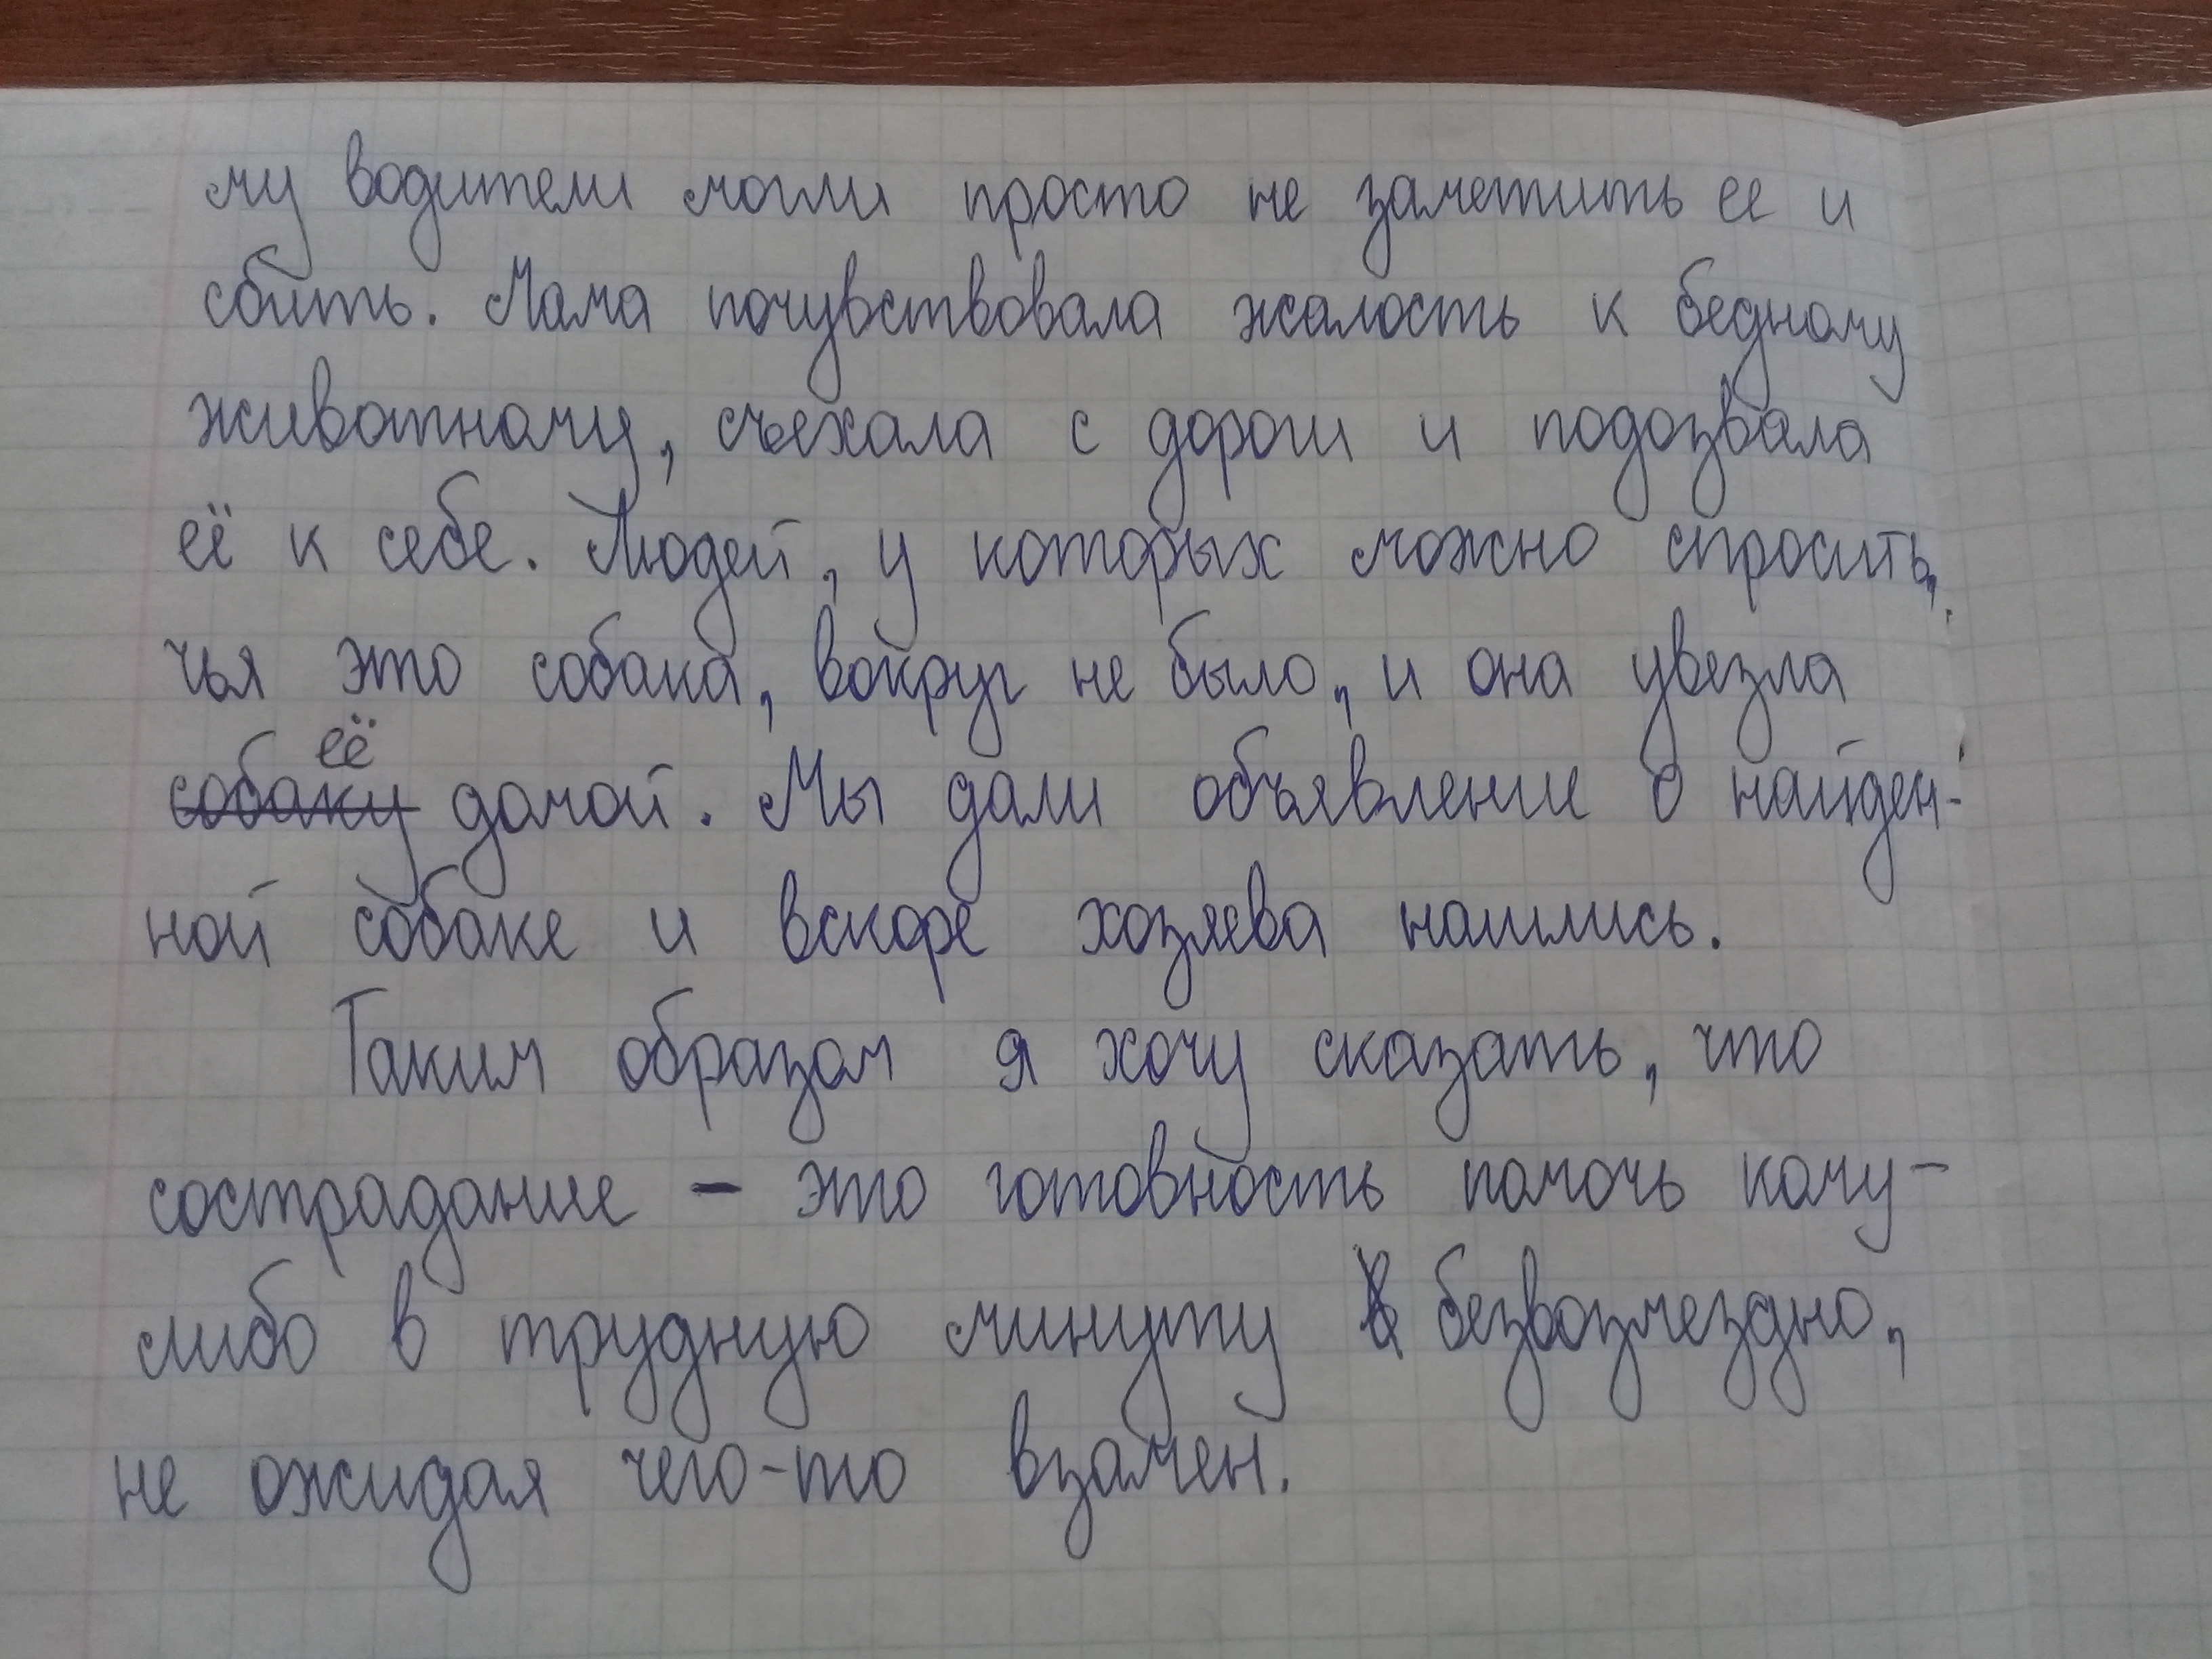 му водители могли просто не заметить ее и
сбить. Мама почувствовала жалость к бедному
животному, съехала с дороги и подозвала
её к себе. Людей, у которых можно спросить,
чья это собака, вокруг не было, и она увезла
её
собаку домой. Мы дали объявление о найден-
ной собаке и вскоре хозяева нашлись.
Таким образом я хочу сказать, что
сострадание - это готовность помочь кому-
либо в трудную минуту безвозмездно,
не ожидая чего-то взамен.